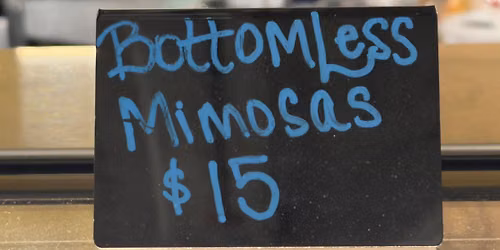 BottomLess
Mimosas
$15